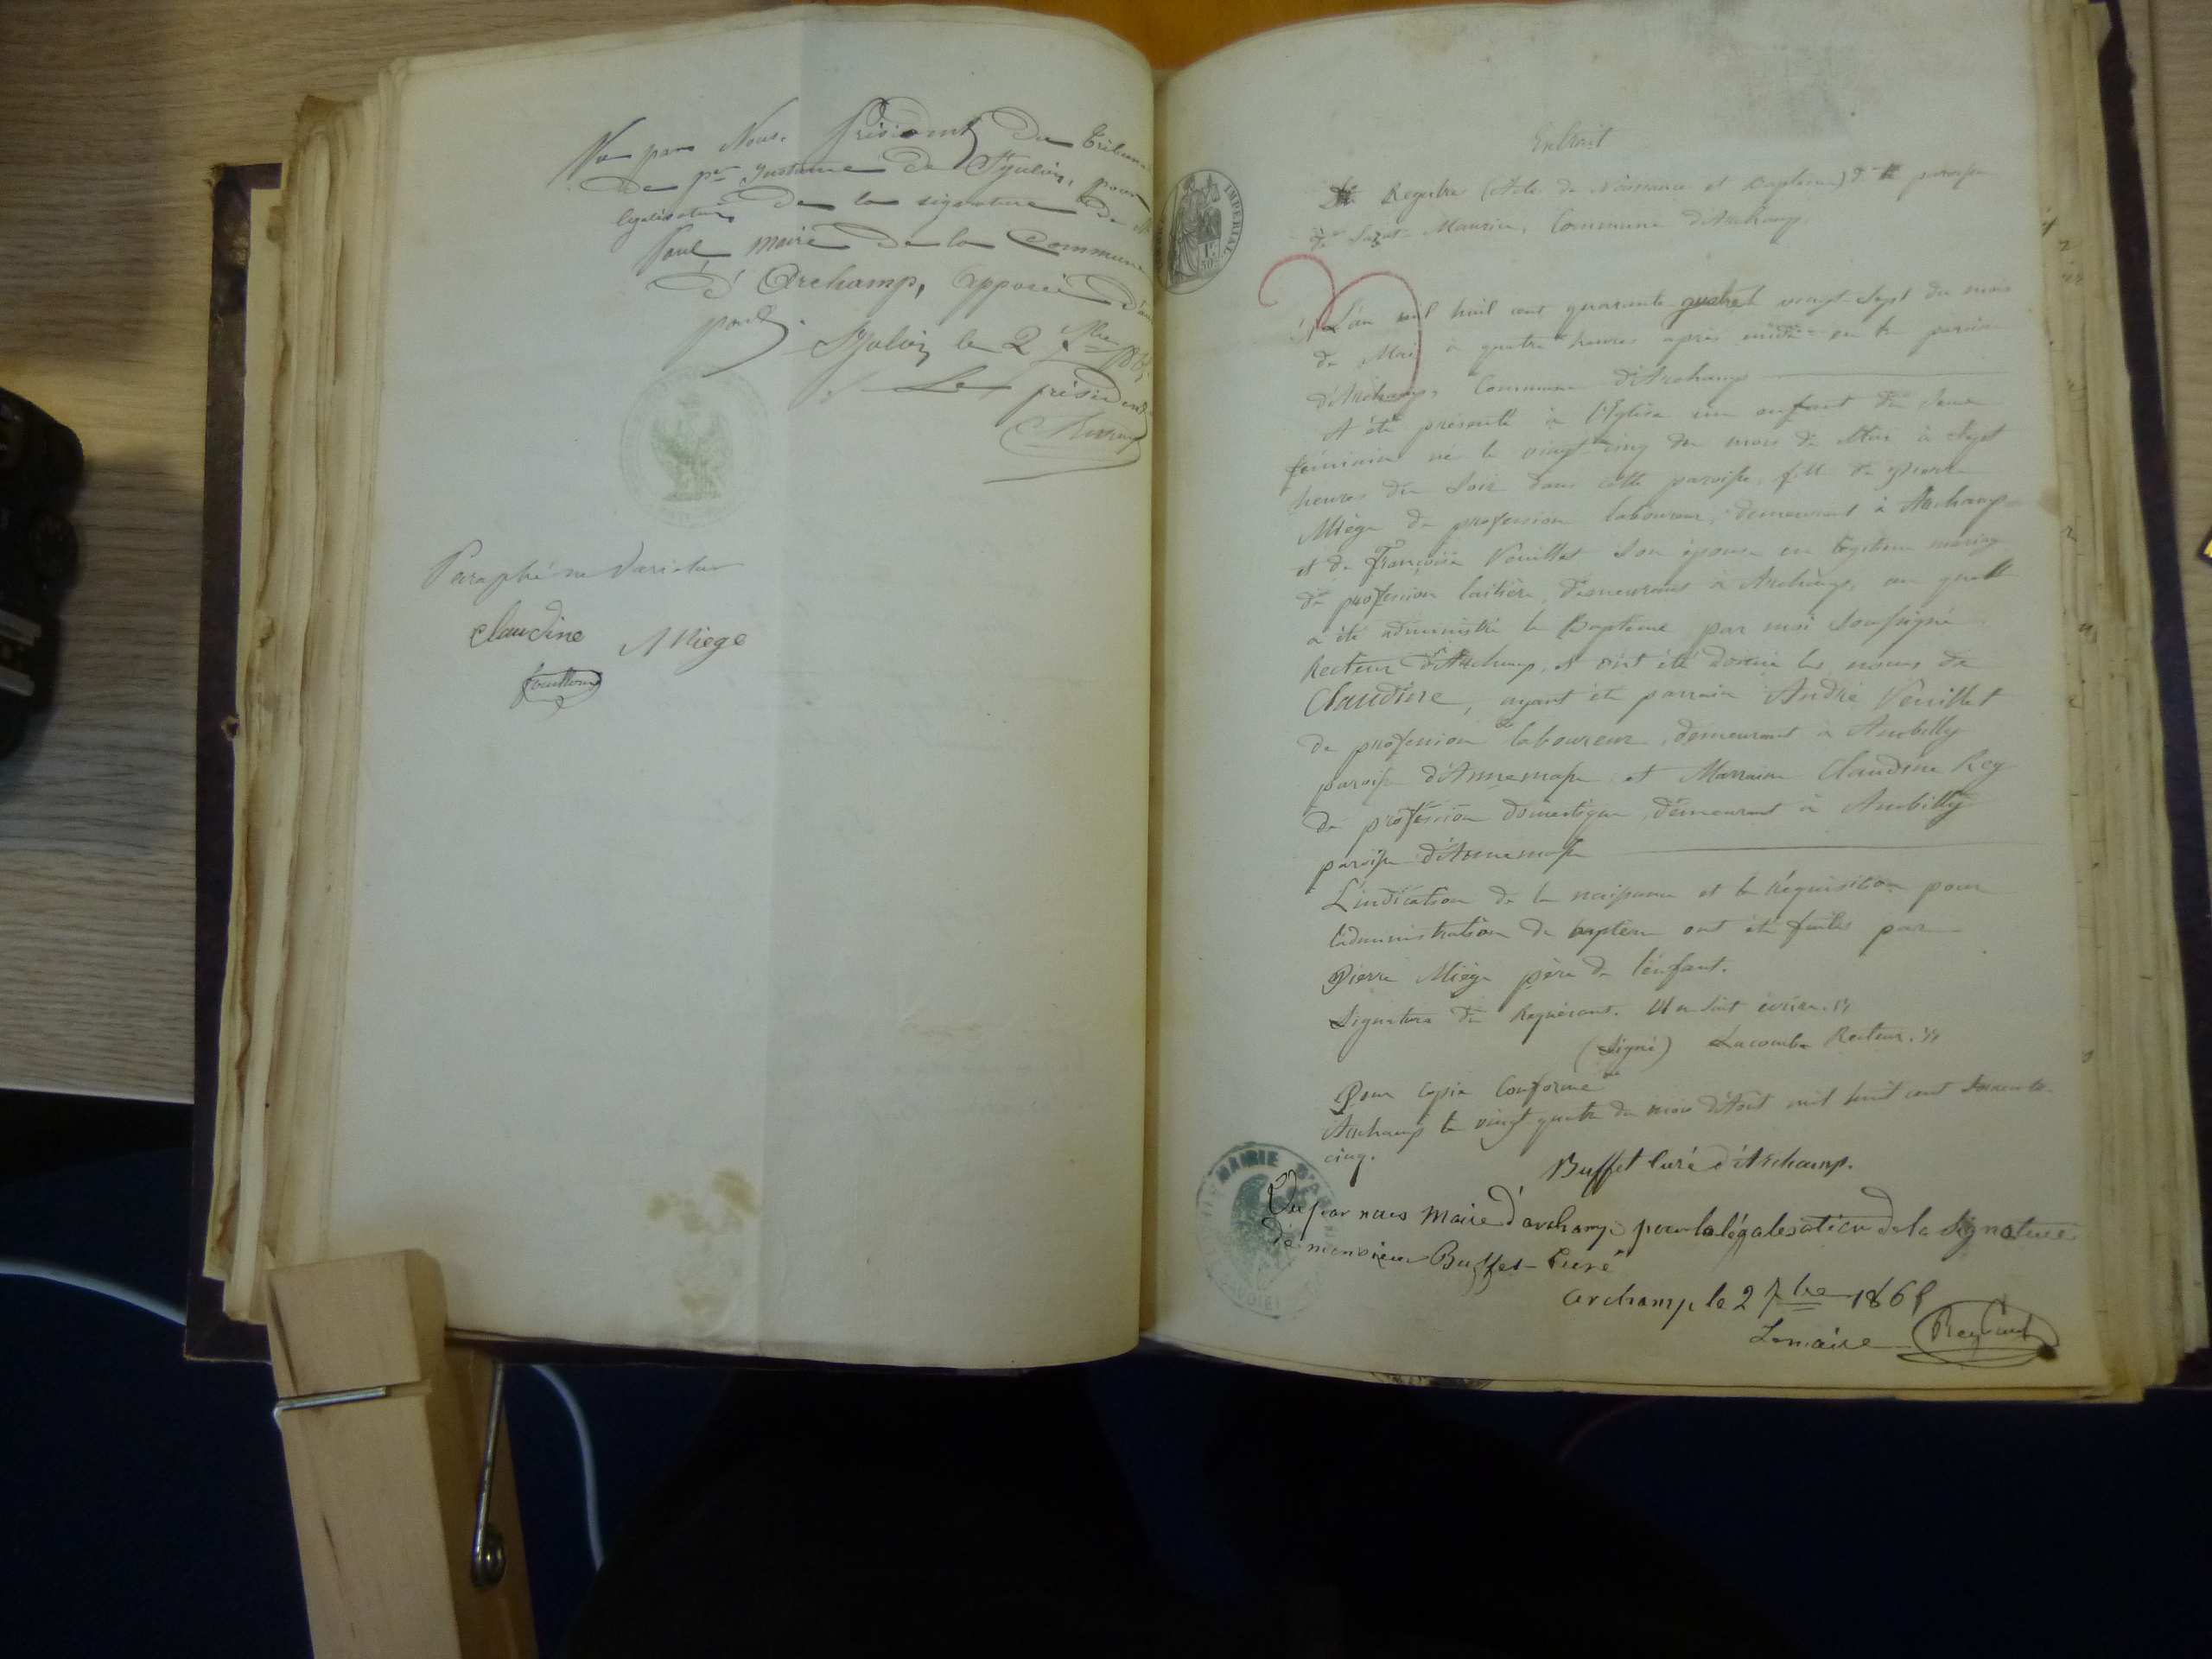 Vu par Nous, Président du Tribunal
de pre Instance de St Julien, pour
légalisation de la signature de Mr
Paul maire de la Commune
d'Archamp, apposée d'autre
part.
St Julien le 2 7bre 1865
Le président
Paraphé ne Varietur
Claudine Miege
IMPERIAL
1F
50C
Extrait
Du Registre (Acte de Naissance et Baptême) de la paroisse
de Saint Maurice, Commune d'Archamp.
L'an mil huit cent quarante quatre vingt-sept du mois
de Mai à quatre heures après midi en la paroisse
d'Archamp, Commune d'Archamp
A été présenté à l'Eglise un enfant de sexe
féminin né le vingt-cinq du mois de Mai à Sept
heures du soir dans cette paroisse, fille de Pierre
Miège de profession laboureur, demeurant à Archamp
et de Françoise Vouillet son épouse en légitime mariage
de profession laitière, demeurant à Archamp, au quel
a été administré le Baptême par moi Soussigné
Recteur d'Archamp, et ont été donné les noms de
Claudine, ayant été parrain André Vouillet
de profession laboureur, demeurant à Ambilly
paroisse d'Annemasse et Marraine Claudine Rey
de profession domestique, demeurant à Ambilly
paroisse d'Annemasse
L'indication de la naissance et la Réquisition pour
l'administration du baptême ont été faites par
Pierre Miège père de l'enfant.
Signature du Requérant. Il ne sait écrire.
(Signé) Lacombe Recteur.
Pour copie Conforme
Archamp le vingt-quatre du mois d'Août mil huit cent soixante
cinq.
Buffet Curé d'Archamp.
MAIRIE D'AR
SAVOIE
Vu par nous Maire d'archamp pour la légalisation de la signature
de monsieur Buffet Curé
archamp le 2 7bre 1865
Lemaire Rey Paul